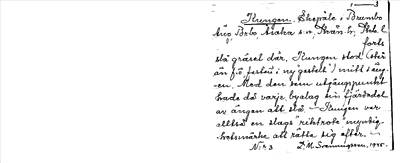 3
Kungen. Skepåle i Brumbo
äng Brbo Åsaka s:n, Thån h, Thb. l.
forts
slå gräset där. Kungen stod (står
än på fertou i ny "gestalt") mitt i äng-
en. Med den som utgångspunkt
hade då varje byalag sin fjärdedel
av ängen att slå. – Kungen var
alltså en slags "riktrote" myndig-
hetsmärke att rätta sig efter. –
N:r 3 D. M. Svenningsson, 1925.